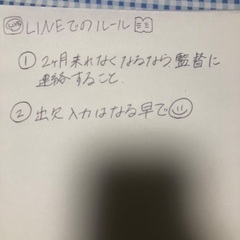 LINEでのルール
① 2ヶ月来れなくなるなら監督に
連絡すること、
② 出欠入力はなる早で